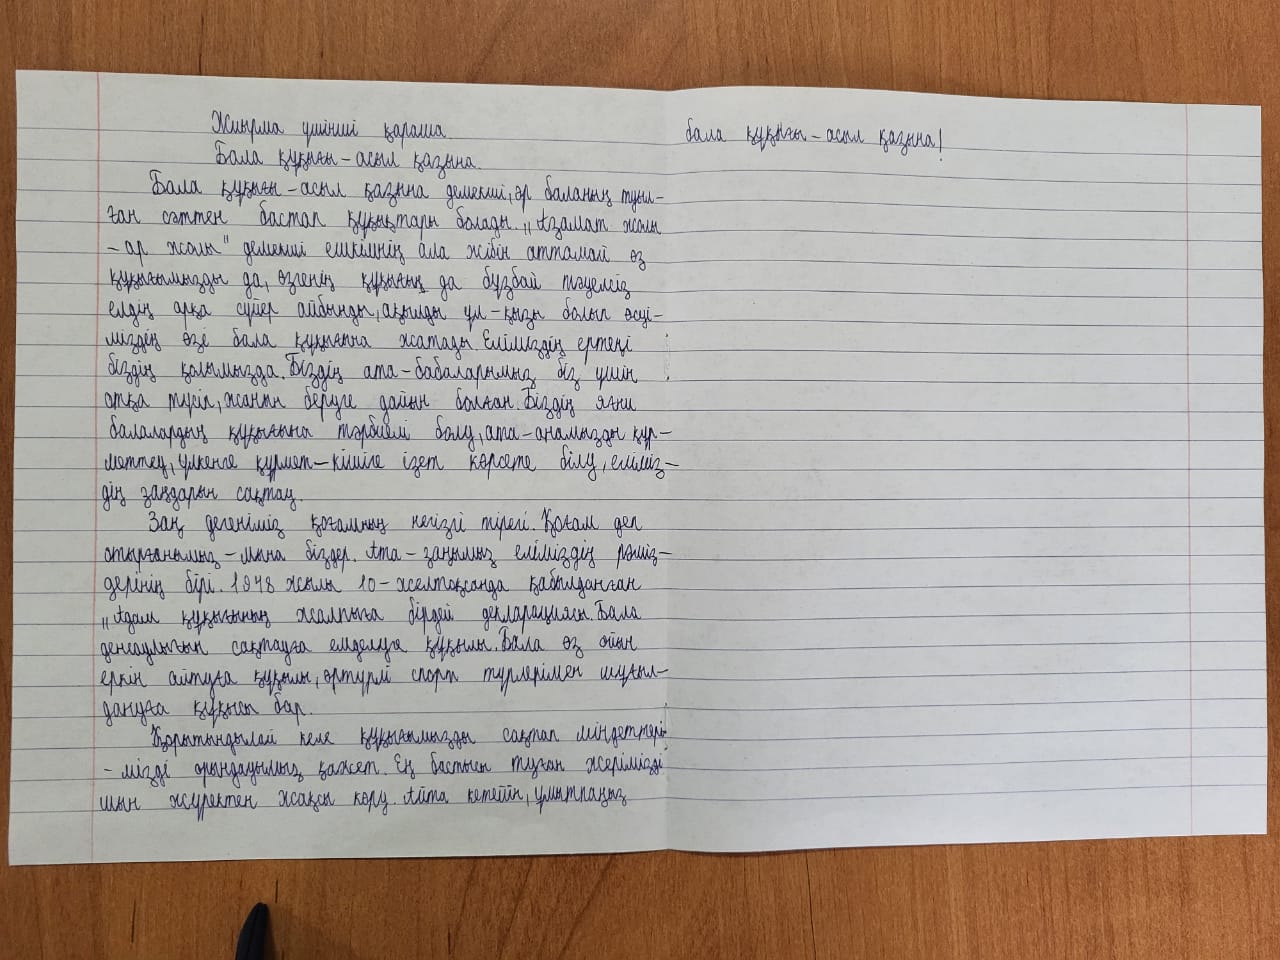 Жиырма үшінші қараша.
Бала құқығы – асыл қазына.
Бала құқығы – асыл қазына демекші, әр баланың туыл-
ған сәттен бастап құқықтары болады. „Азамат жолы
– ар жолы" демекші ешкімнің ала жібін аттамай өз
құқығымызды да, өзгенің құқығың да бұзбай тәуелсіз
елдің арқа сүйер айбынды, ақылды ұл-қызы болып өсуі-
міздің өзі бала құқығына жатады. Еліміздің ертеңі
біздің қолымызда. Біздің ата-бабаларымыз біз үшін
отқа түсіп, жанын беруге дайын болған. Біздің яғни
балалардың құқығына тәрбиелі болу, ата-анамызды құр-
меттеу, үлкенге құрмет – кішіге ізет көрсете білу, еліміз-
дің заңдарын сақтау.
Заң дегеніміз қоғамның негізгі тірегі. Қоғам деп
отырғанымыз – мына біздер. Ата-заңымыз еліміздің рәміз-
дерінің бірі. 1948 жылы 10-желтоқсанда қабылданған
„Адам құқығының жалпыға бірдей декларациясы. Бала
денсаулығын сақтауға емделуге құқылы. Бала өз ойын
еркін айтуға құқылы, әртүрлі спорт түрлерімен шұғыл-
дануға құқысы бар.
Қорытындылай келе құқығымызды сақтап міндеттері-
- мізді орындауымыз қажет. Ең бастысы туған жерімізді
шын жүректен жақсы көру. Айта кетейін, ұмытпаңыз
бала құқығы – асыл қазына!